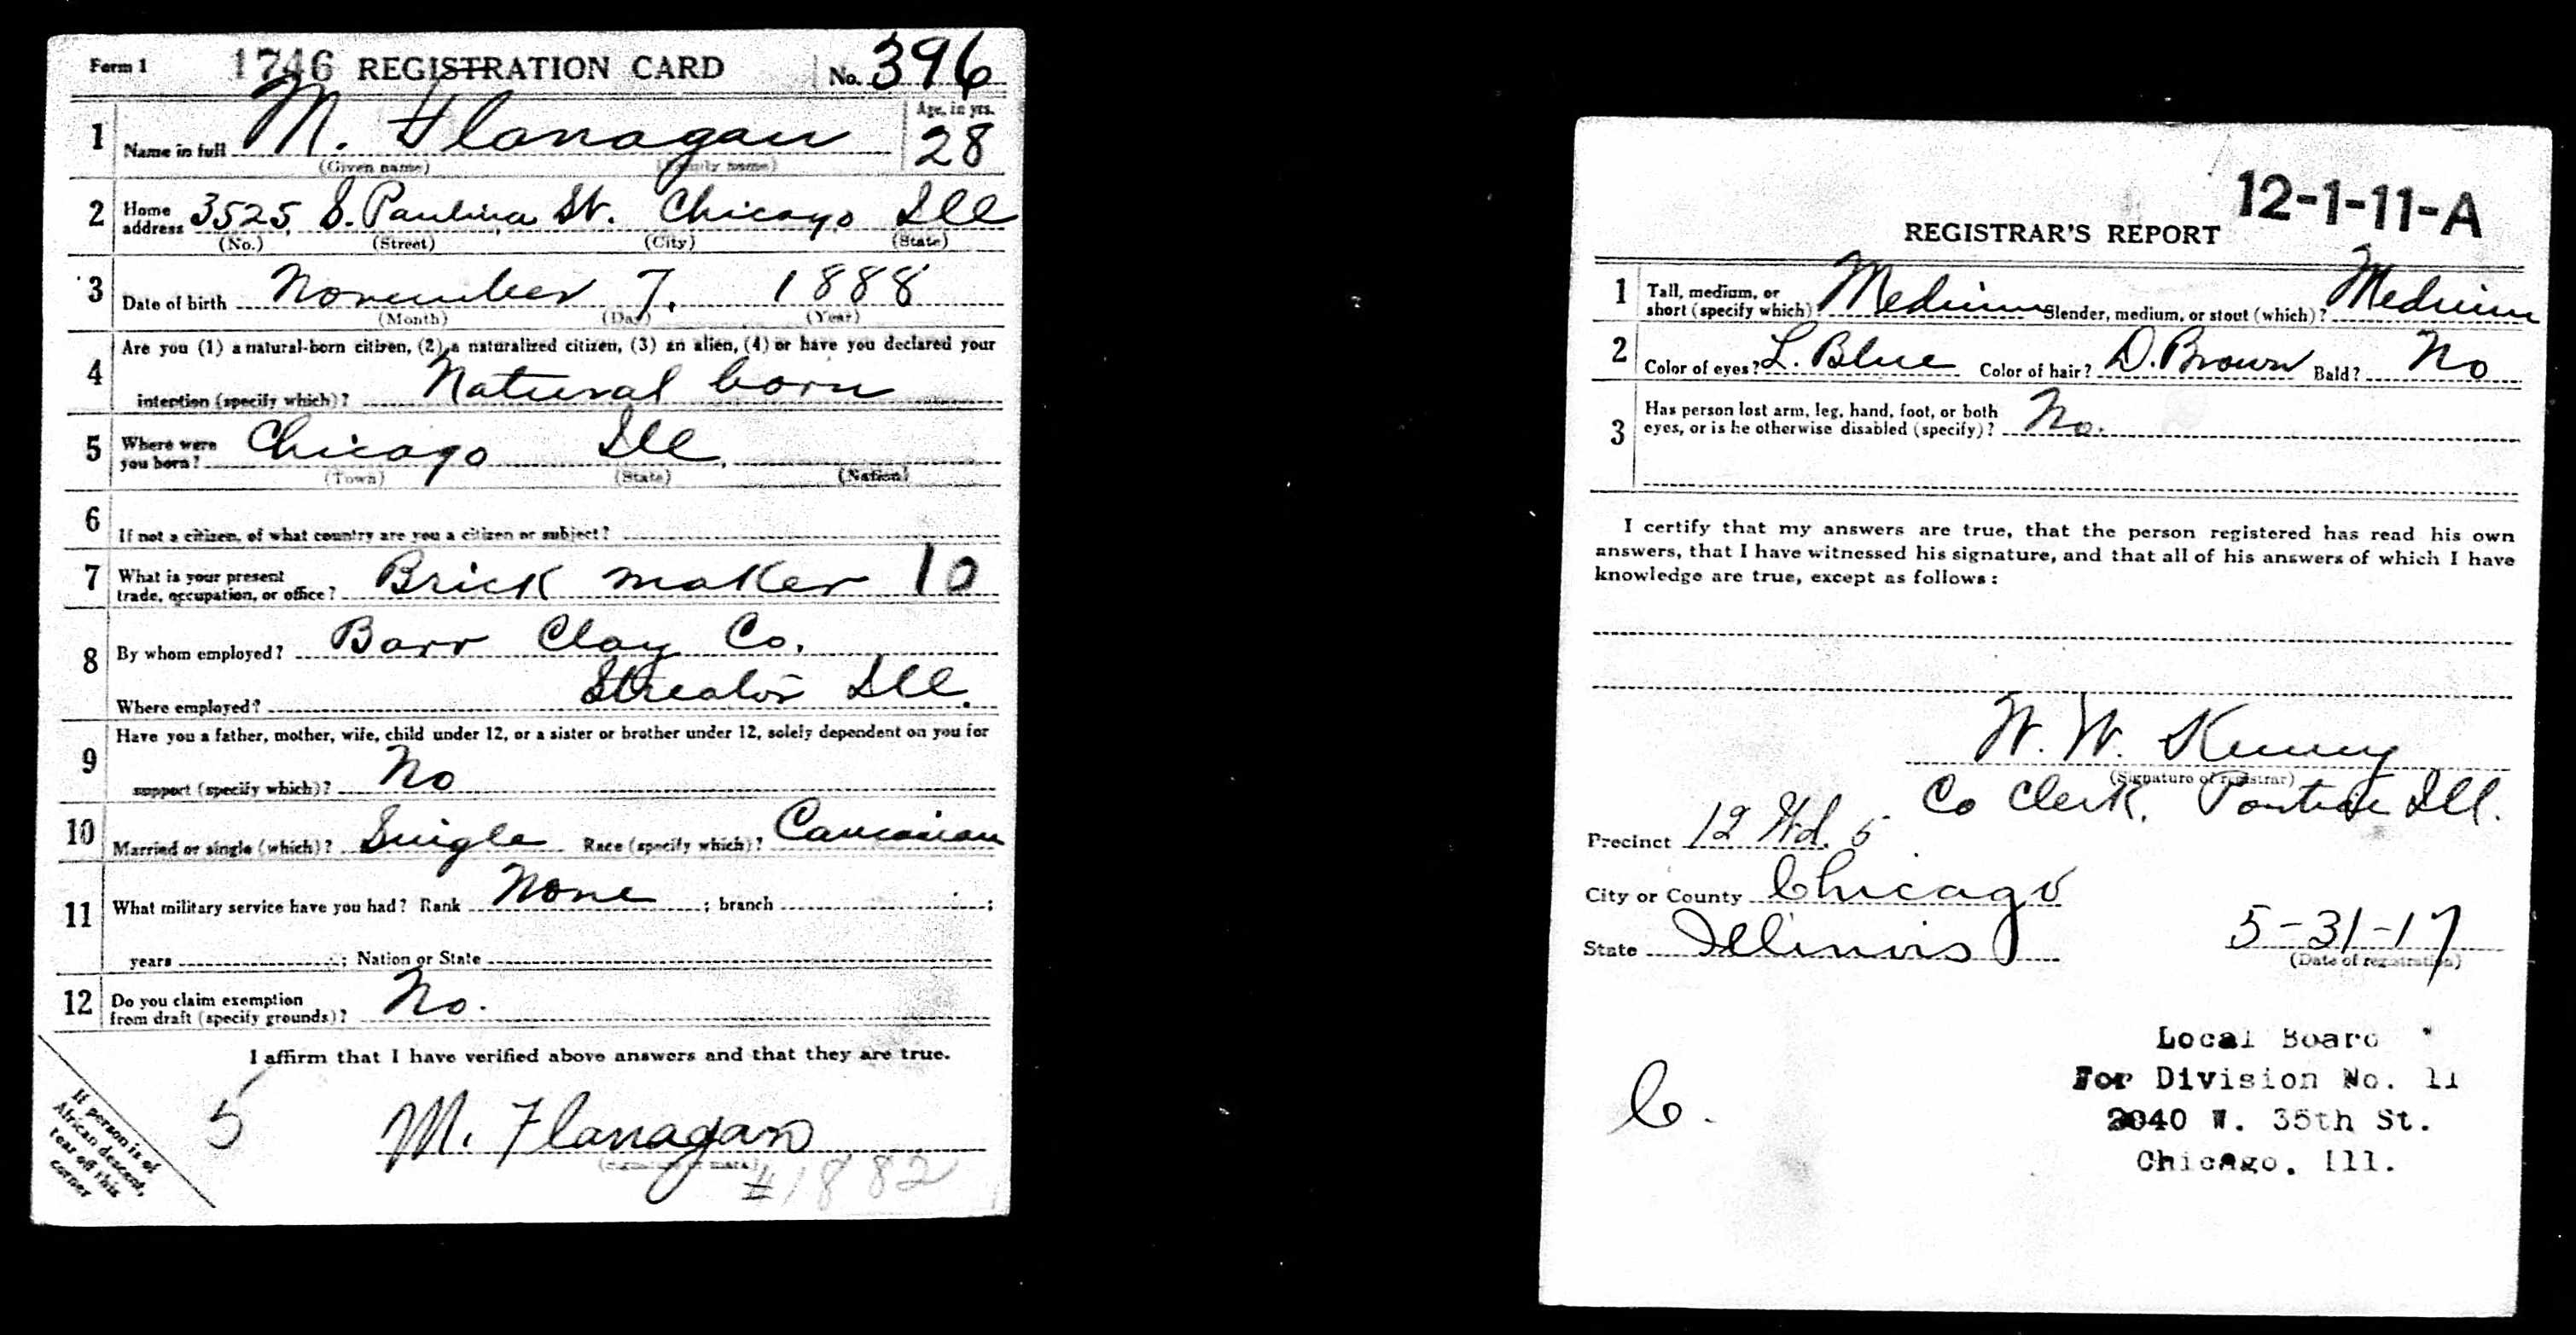 Form 1 1746 REGISTRATION CARD No. 396
1 Name in full M. Flanagan Age, in yrs. 28
(Given name) (Family name)
2 Home address 3525 S. Paulina St. Chicago Ill
(No.) (Street) (City) (State)
3 Date of birth November 7, 1888
(Month) (Day) (Year)
4 Are you (1) a natural-born citizen, (2) a naturalized citizen, (3) an alien, (4) or have you declared your
intention (specify which)? Natural born
5 Where were you born? Chicago Ill.
(Town) (State) (Nation)
6 If not a citizen, of what country are you a citizen or subject?
7 What is your present trade, occupation, or office? Brick maker 10
8 By whom employed? Barr Clay Co.
Where employed? Streator Ill.
9 Have you a father, mother, wife, child under 12, or a sister or brother under 12, solely dependent on you for
support (specify which)? No
10 Married or single (which)? Single Race (specify which)? Caucasian
11 What military service have you had? Rank None ; branch ;
years ; Nation or State
12 Do you claim exemption from draft (specify grounds)? No.
I affirm that I have verified above answers and that they are true.
5
M. Flanagan
(Signature or mark)
#1882
If person is of
African descent,
tear off this
corner
12-1-11-A
REGISTRAR'S REPORT
1 Tall, medium, or short (specify which)? Medium Slender, medium, or stout (which)? Medium
2 Color of eyes? L. Blue Color of hair? D. Brown Bald? No
3 Has person lost arm, leg, hand, foot, or both
eyes, or is he otherwise disabled (specify)? No.
I certify that my answers are true, that the person registered has read his own
answers, that I have witnessed his signature, and that all of his answers of which I have
knowledge are true, except as follows:
W. W. Kenny
(Signature of registrar)
Co Clerk, Pontiac Ill.
Precinct 12 Wd. 5
City or County Chicago
State Illinois 5-31-17
(Date of registration)
C.
Local Board
For Division No. 11
2040 W. 35th St.
Chicago, Ill.